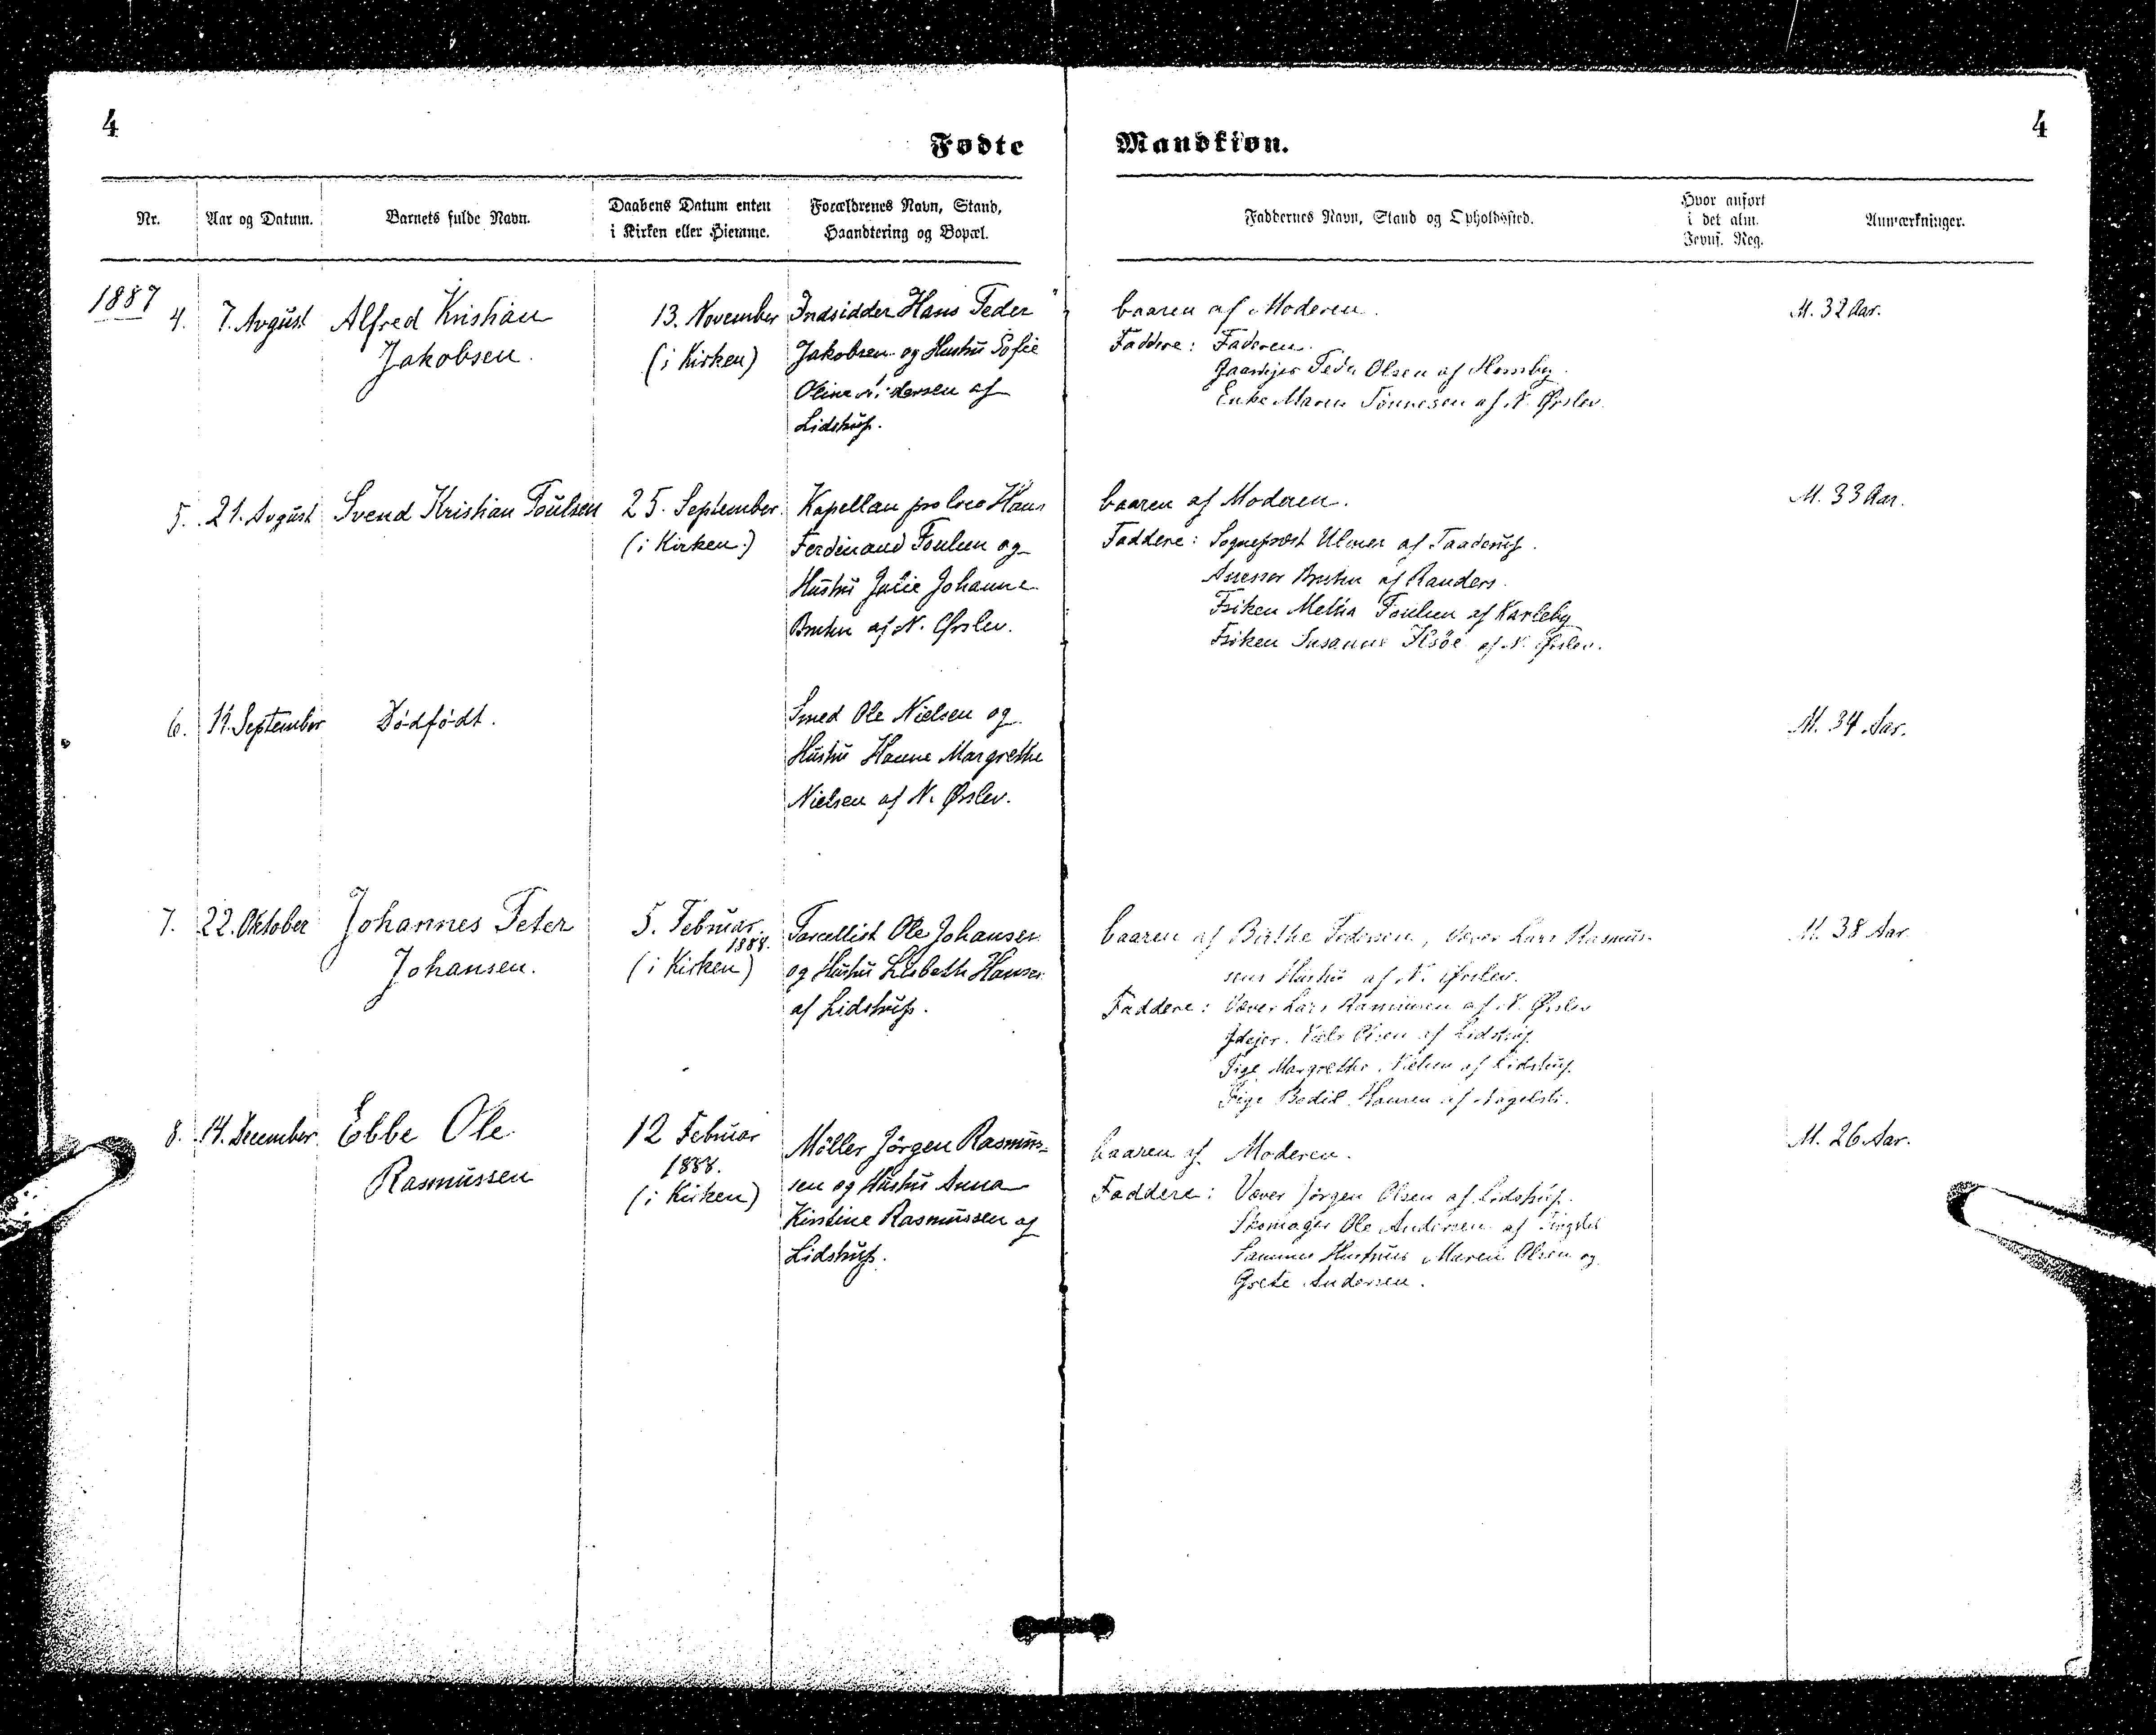 4
4
Fødte
Mandkiøn.
Nr.
Aar og Datum.
Barnets fulde Navn.
Daabens Datum enten
i Kirken eller Hiemme.
Forældrenes Navn, Stand,
Haandtering og Bopæl.
Faddernes Navn, Stand og Opholdssted.
Hvor anført
i det alm.
Jevnf. Reg.
Anmærkninger.
1887
4.
7. Avgust
Alfred Kristian
Jakobsen.
13. November
(i Kirken)
Indsidder Hans Peder
Jakobsen og Hustru Sofie
Oline af
Lidstrup.
baaren af Moderen.
Faddere: Faderen.
Gaardejer Peder Olsen af
Enke Maren Tønnesen af N. Ørslev.
M. 32 Aar.
5.
21. Avgust
Svend Kristian Poulsen
25. September.
(i Kirken.)
Kapellan pro loco Hans
Ferdinand Poulsen og
Hustru Julie Johanne
af N. Ørslev.
baaren af Moderen.
Faddere: Sogneprest Ulmer af Taaderup.
Assessor af Randers.
Frøken Poulsen af Karleby
Frøken Susanne Ilsøe af N. Ørslev.
M. 33 Aar.
6.
11. September
Dødfødt.
Smed Ole Nielsen og
Hustru Hanne Margrethe
Nielsen af N. Ørslev.
M. 34 Aar.
7.
22. Oktober
Johannes Peter
Johansen.
5. Februar.
1888.
(i Kirken)
Parcellist Ole Johansen
og Hustru Lisbeth Hansen
af Lidstrup.
baaren af Birthe Pedersen, Væver Lars Rasmus-
sens Hustru af N. Ørslev.
Faddere: Væver Lars Rasmussen af N. Ørslev
Niels Olsen af Lidstrup.
Pige Margrethe Nielsen af Lidstrup.
Pige Bodil Hansen af
M. 38 Aar.
8.
14. December.
Ebbe Ole
Rasmussen
12 Februar
1888.
(i Kirken)
Møller Jørgen Rasmus-
sen og Hustru Anna
Kirstine Rasmussen af
Lidstrup.
baaren af Moderen.
Faddere: Væver Jørgen Olsen af Lidstrup.
Skomager Ole Andersen af
Sammes Hustruer Maren Olsen og
Grete Andersen.
M. 26 Aar.